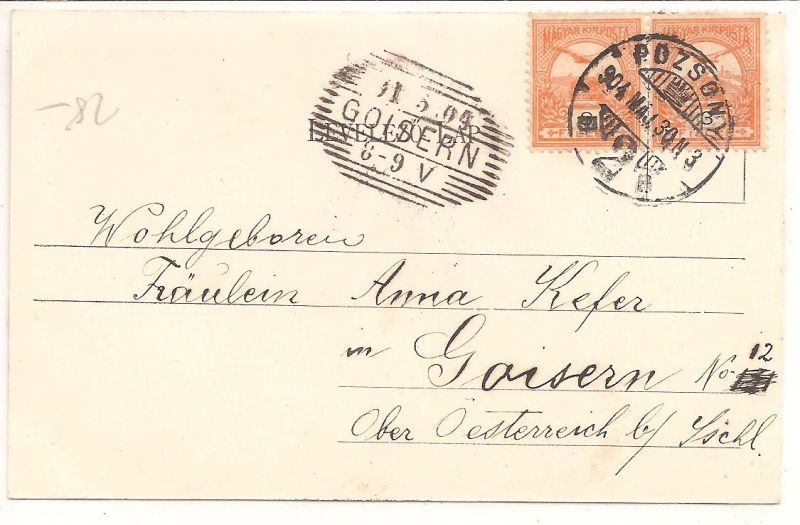 MAGYAR KIR. POSTA MAGYAR KIR. POSTA
POZSONY
904 MÁJ. 30
31 5 04
GOISERN
8-9 V
LEVELEZŐ-LAP
-82
Wohlgeboren
Fräulein Anna Kefer
in Goisern No. 12
Ober Oesterreich b/ Ischl.